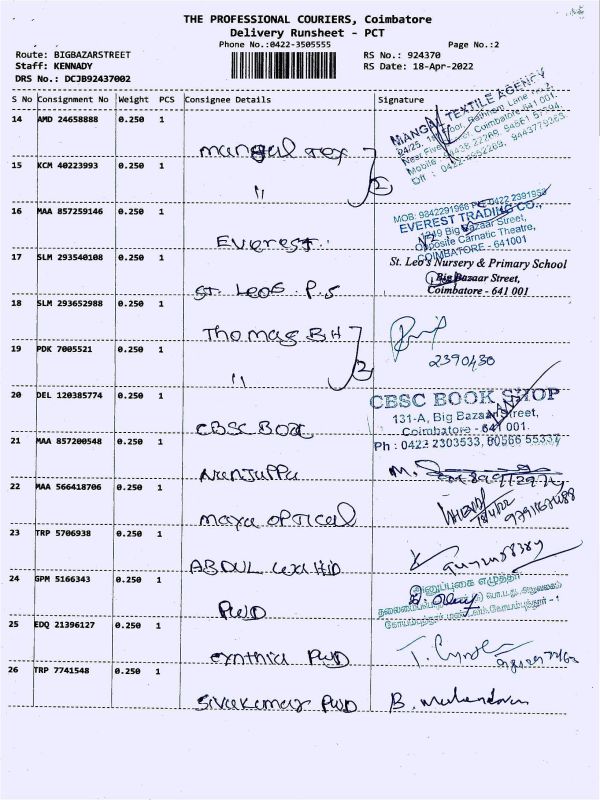 THE PROFESSIONAL COURIERS, Coimbatore
Delivery Runsheet - PCT
Phone No.:0422-3505555 Page No.:2
Route: BIGBAZARSTREET RS No.: 924370
Staff: KENNADY RS Date: 18-Apr-2022
DRS No.: DCJB92437002
S No Consignment No Weight PCS Consignee Details Signature
14 AMD 24658888 0.250 1 Mangal Tex MANGAL TEXTILE AGENCY
15 KCM 40223993 0.250 1 "
2
16 MAA 857259146 0.250 1 Everest
EVEREST TRADING CO.,
1249 Big Bazaar Street,
Opposite Carnatic Theatre,
COIMBATORE - 641001
17 SLM 293540108 0.250 1 St. Leos P.S
St. Leo's Nursery & Primary School
Big Bazaar Street,
Coimbatore - 641 001
18 SLM 293652988 0.250 1 Thomas B.H
19 PDK 7005521 0.250 1 " 2390430
2
20 DEL 120385774 0.250 1 CBSC Book
CBSC BOOK SHOP
131-A, Big Bazaar Street,
Coimbatore - 641 001.
21 MAA 857200548 0.250 1 Nunjuppa
22 MAA 566418706 0.250 1 Maya optical
23 TRP 5706938 0.250 1 ABDUL WAHID
24 GPM 5166343 0.250 1 PWD
25 EDQ 21396127 0.250 1 Cynthia PWD T. Cynthia
26 TRP 7741548 0.250 1 Sivakumar PWD B. Mahendran